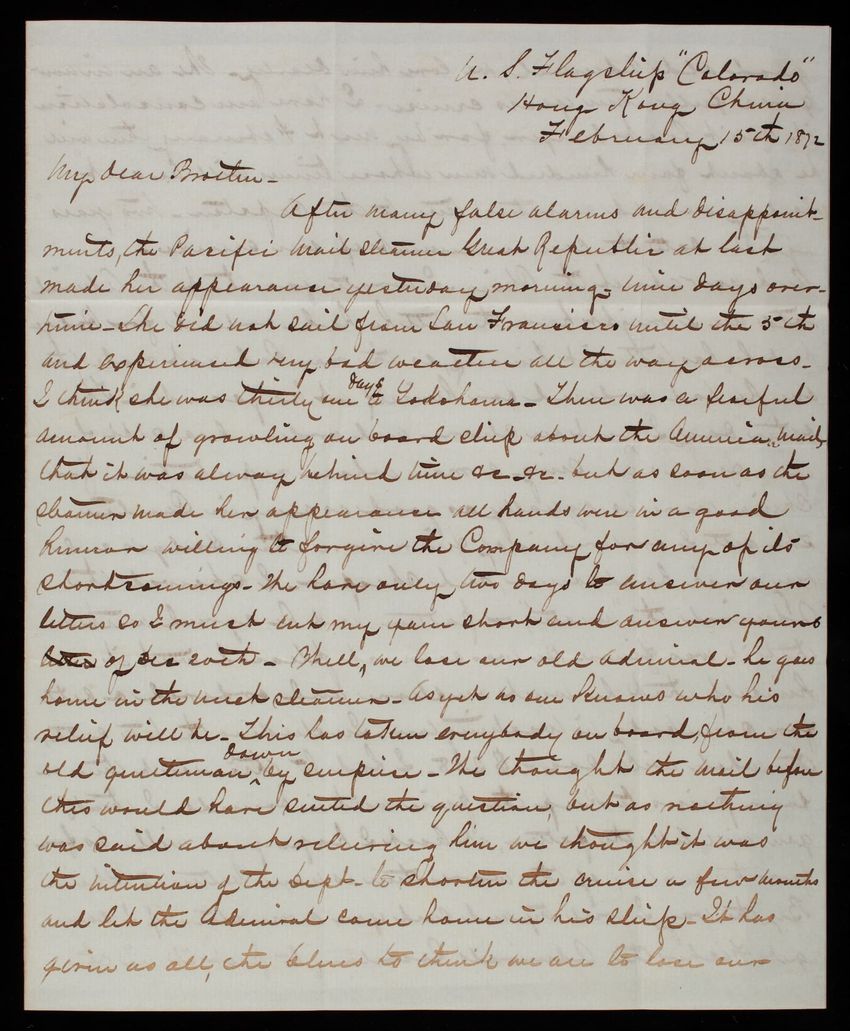 U. S. Flagship "Colorado"
Hong Kong China
February 15th 1872
My dear Brother-
After many false alarms and disappoint-
ments, the Pacific Mail Steamer Great Republic at last
made her appearance yesterday morning- nine days over-
time- She did not sail from San Francisco until the 5th
and experienced very bad weather all the way across-
I think she was thirty one days to Yokohama- There was a fearful
amount of growling on board ship about the America mail,
that it was alway behind time &c. &c. but as soon as the
steamer made her appearance all hands were in a good
humor willing to forgive the Company for any of its
shortcomings- We have only two days to answer our
letters so I must cut my yarn short and answer yours
of Dec 20th- Well, we lose our old Admiral- he goes
home in the next steamer- As yet no one knows who his
relief will be- This has taken everybody on board, from the
old gentleman down, by surprise- We thought the mail before
this would have settled the question, but as nothing
was said about relieving him we thought it was
the intention of the Dept- to shorten the cruise a few months
and let the Admiral come home in his ship- It has
given us all, the blues to think we are to lose our